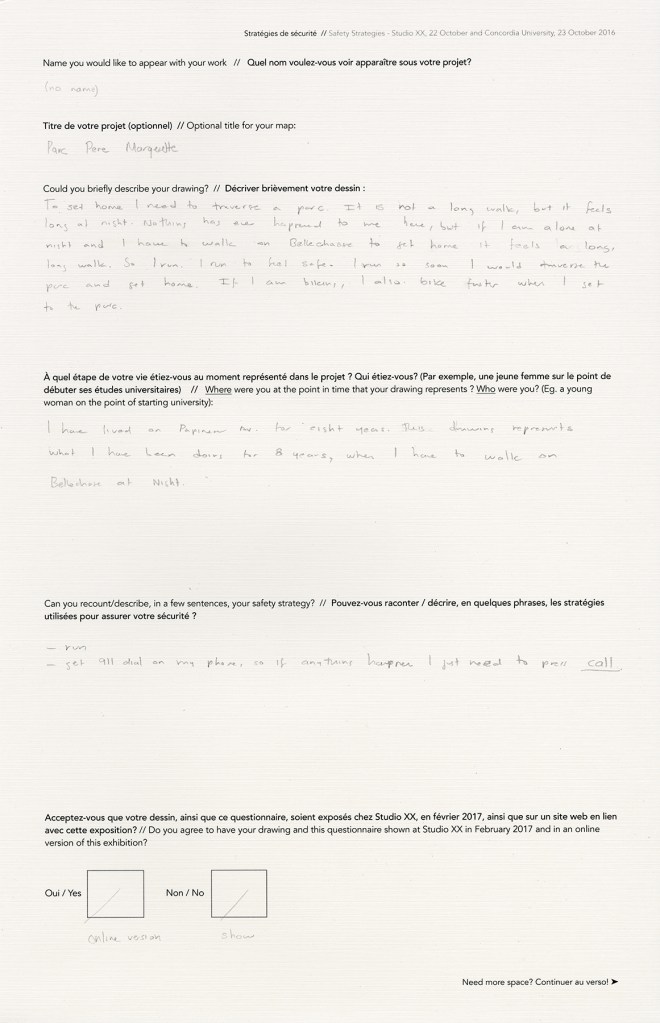 Stratégies de sécurité // Safety Strategies - Studio XX, 22 October and Concordia University, 23 October 2016
Name you would like to appear with your work // Quel nom voulez-vous voir apparaître sous votre projet?
(no name)
Titre de votre projet (optionnel) // Optional title for your map:
Parc Pere Marquette
Could you briefly describe your drawing? // Décriver brièvement votre dessin :
To get home I need to traverse a parc. It is not a long walk, but it feels
long at night. Nothing has ever happened to me here, but if I am alone at
night and I have to walk on Bellechasse to get home it feels a long,
long walk. So I run. I run to feel safe. I run so soon I would traverse the
parc and get home. If I am biking, I also bike faster when I get
to the parc.
À quel étape de votre vie étiez-vous au moment représenté dans le projet ? Qui étiez-vous? (Par exemple, une jeune femme sur le point de
débuter ses études universitaires) // Where were you at the point in time that your drawing represents ? Who were you? (Eg. a young
woman on the point of starting university):
I have lived on Papineau Av. for eight years. This drawing represents
what I have been doing for 8 years, when I have to walk on
Bellechasse at Night.
Can you recount/describe, in a few sentences, your safety strategy? // Pouvez-vous raconter / décrire, en quelques phrases, les stratégies
utilisées pour assurer votre sécurité ?
– run
– get 911 dial on my phone, so if anything happen I just need to press call
Acceptez-vous que votre dessin, ainsi que ce questionnaire, soient exposés chez Studio XX, en février 2017, ainsi que sur un site web en lien
avec cette exposition? // Do you agree to have your drawing and this questionnaire shown at Studio XX in February 2017 and in an online
version of this exhibition?
Oui / Yes Non / No
online version show
Need more space? Continuer au verso! ➤